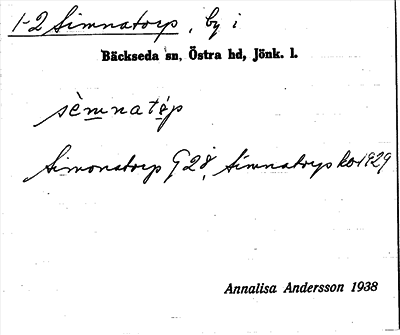 1-2 Simnatorp, by i
Bäckseda sn, Östra hd, Jönk. l.
sèmnatǫ́p
Simonatorp G 28, Simnatorp ko 1929
Annalisa Andersson 1938